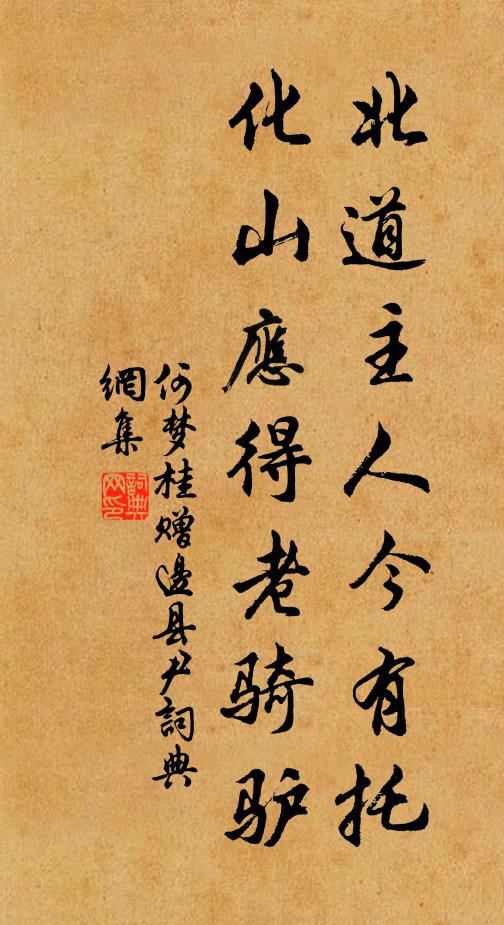 北道主人今有托
化山應得老骑驴
何梦桂赠邊县尹詞典
網集
詞典
网印